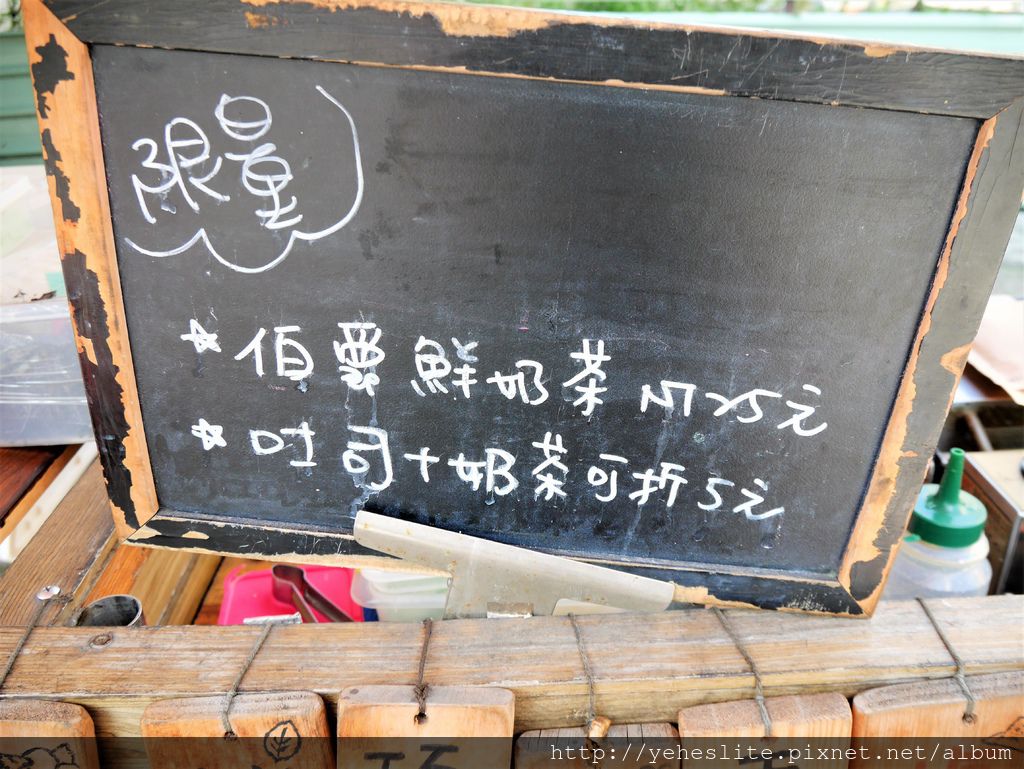 限量
☆伯爵鮮奶茶 NT25元
☆吐司+奶茶可折5元
http://yeheslite.pixnet.net/album